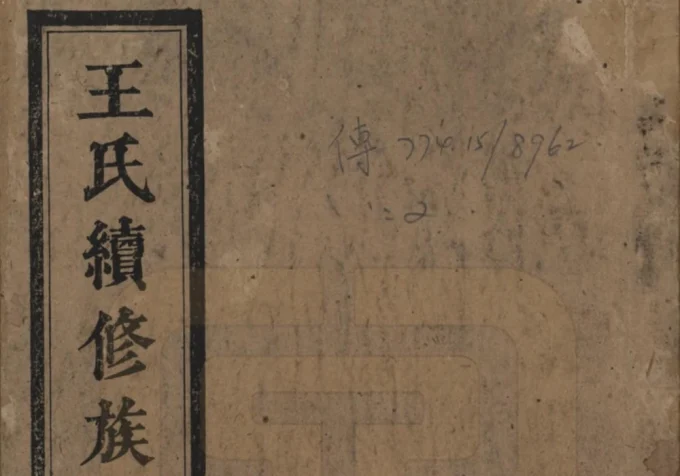 王氏續修族
傳 774.15/8962
:2